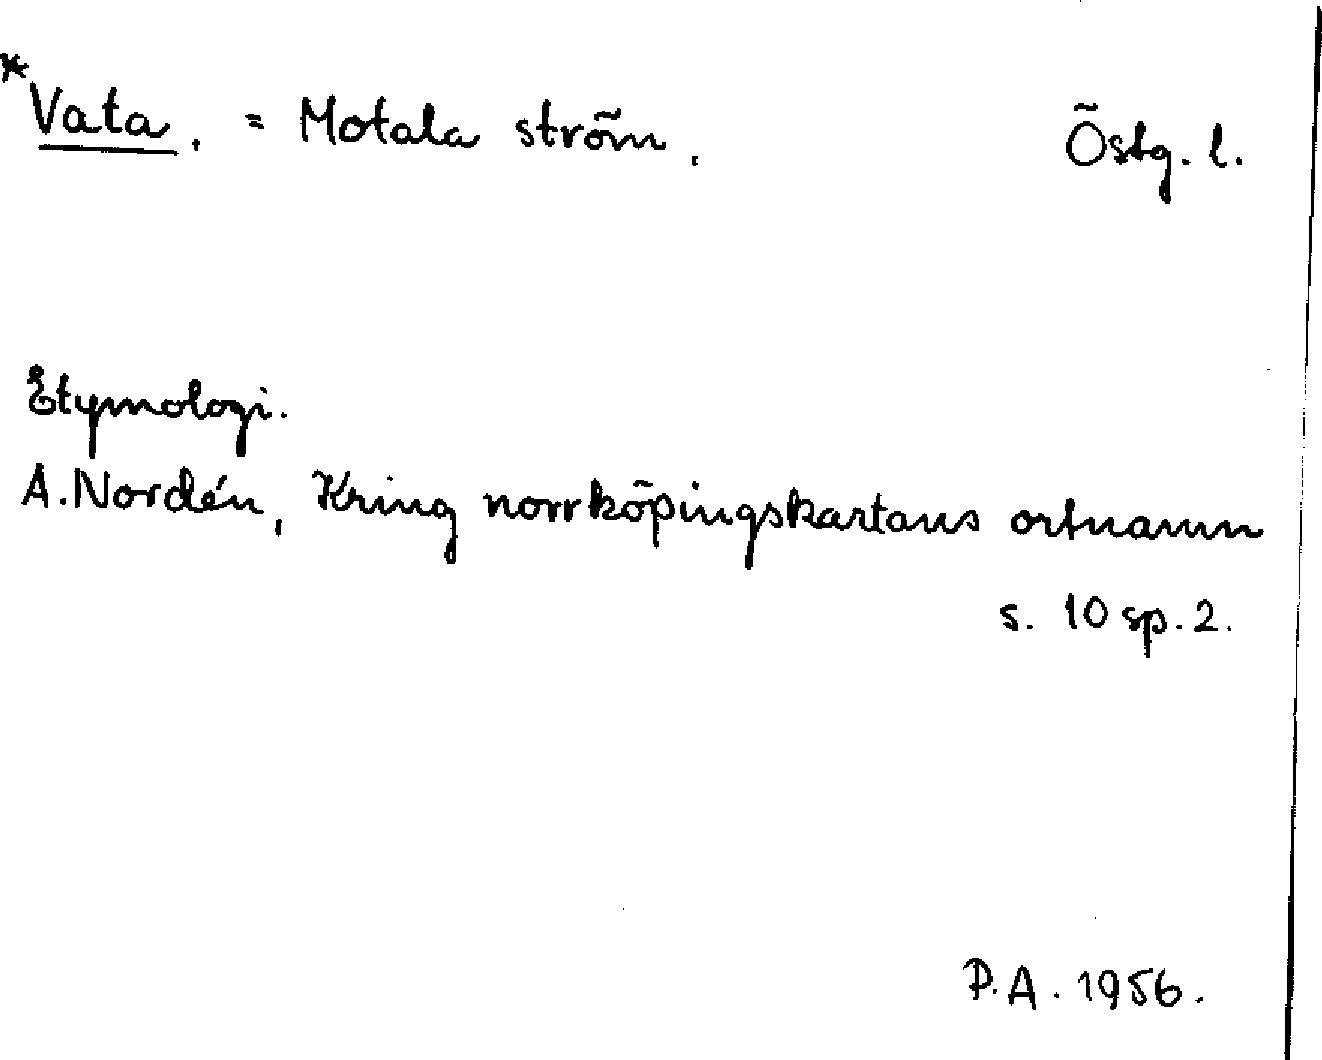 *Vata. = Motala ström. Östg. l.
Etymologi.
A. Nordén, Kring norrköpingskartans ortnamn
s. 10 sp. 2.
P.A. 1956.